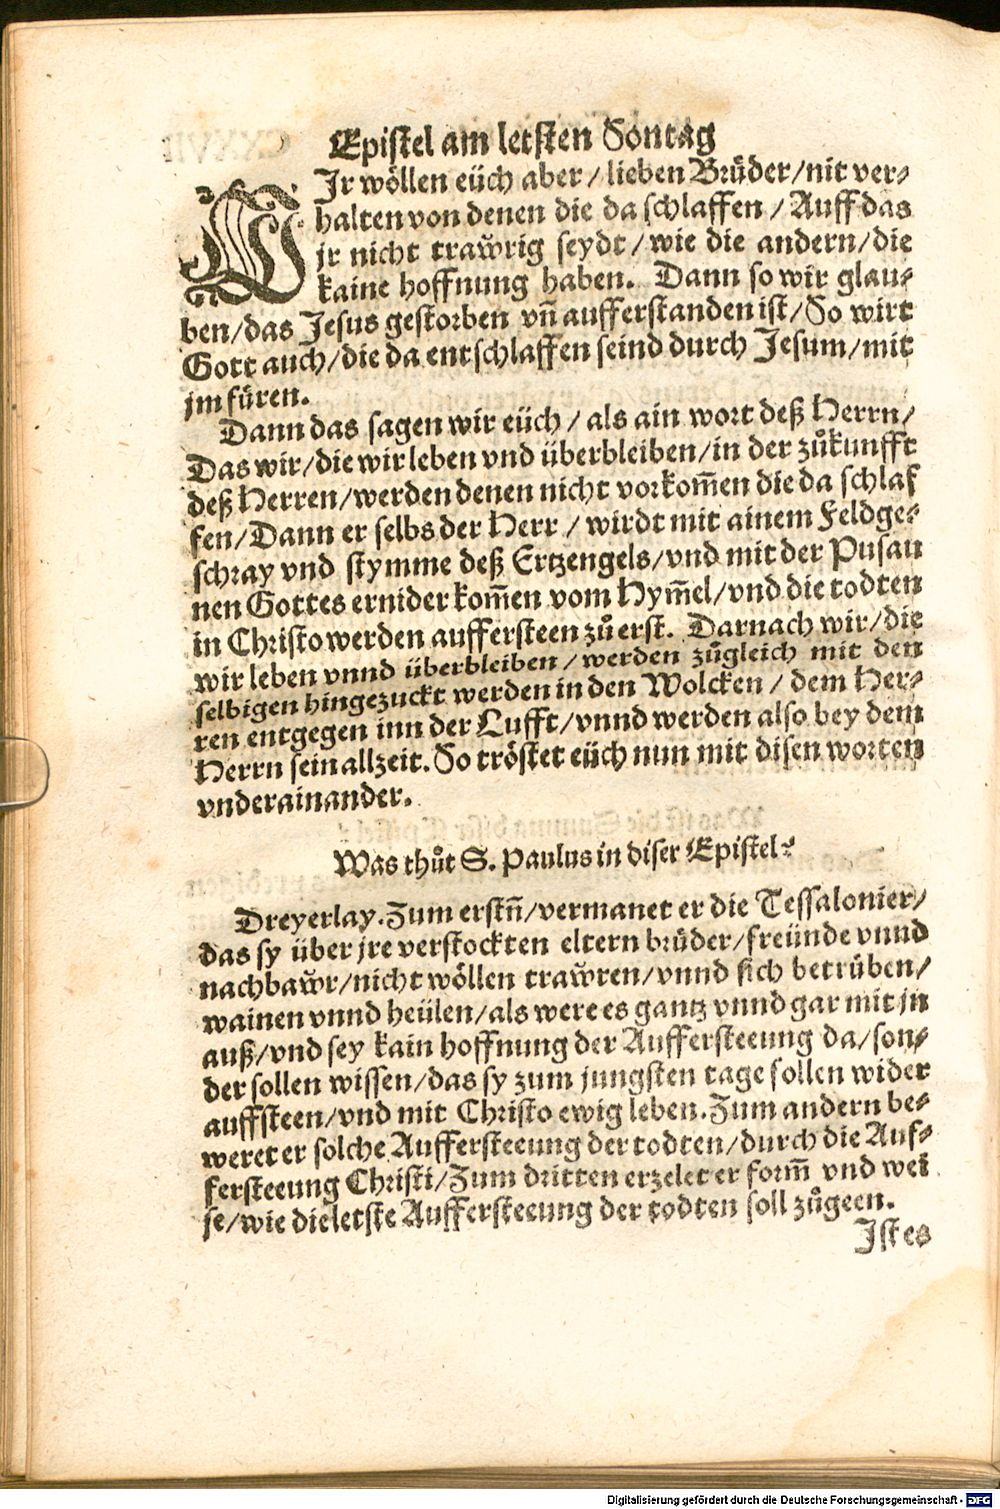 Epistel am letsten Sontag
WIr wöllen eüch aber / lieben Brüder/nit ver-
halten von denen die da schlaffen / Auff das
jr nicht trawrig seydt / wie die andern/die
kaine hoffnung haben. Dann so wir glau-
ben/das Jesus gestorben vñ aufferstanden ist/So wirt
Gott auch/die da entschlaffen seind durch Jesum/mit
jm füren.
Dann das sagen wir eüch / als ain wort deß Herrn/
Das wir/die wir leben vnd überbleiben/in der zůkunfft
deß Herren/werden denen nicht vorkom̃en die da schlaf
fen/Dann er selbs der Herr / wirdt mit ainem Feldge-
schray vnd stymme deß Ertzengels/vnd mit der Pusau
nen Gottes ernider kom̃en vom Hym̃el/vnd die todten
in Christo werden auffersteen zů erst. Darnach wir/die
wir leben vnnd überbleiben / werden zůgleich mit den
selbigen hingezuckt werden in den Wolcken / dem Her-
ren entgegen inn der Lufft/vnnd werden also bey dem
Herrn sein allzeit. So tröstet eüch nun mit disen worten
vnderainander.
Was thůt S. Paulus in diser Epistel?
Dreyerlay. Zum erstñ/vermanet er die Tessalonier/
das sy über jre verstockten eltern brüder/freünde vnnd
nachbawr/nicht wöllen trawren/vnnd sich betrüben/
wainen vnnd heülen/als were es gantz vnnd gar mit jn
auß/vnd sey kain hoffnung der Auffersteeung da/son-
der sollen wissen/das sy zum jungsten tage sollen wider
auffsteen/vnd mit Christo ewig leben. Zum andern be-
weret er solche Auffersteeung der todten/durch die Auf-
fersteeung Christi/Zum dritten erzelet er form̃ vnd wei
se/wie die letste Auffersteeung der todten soll zůgeen.
Ist es
Digitalisierung gefördert durch die Deutsche Forschungsgemeinschaft - DFG